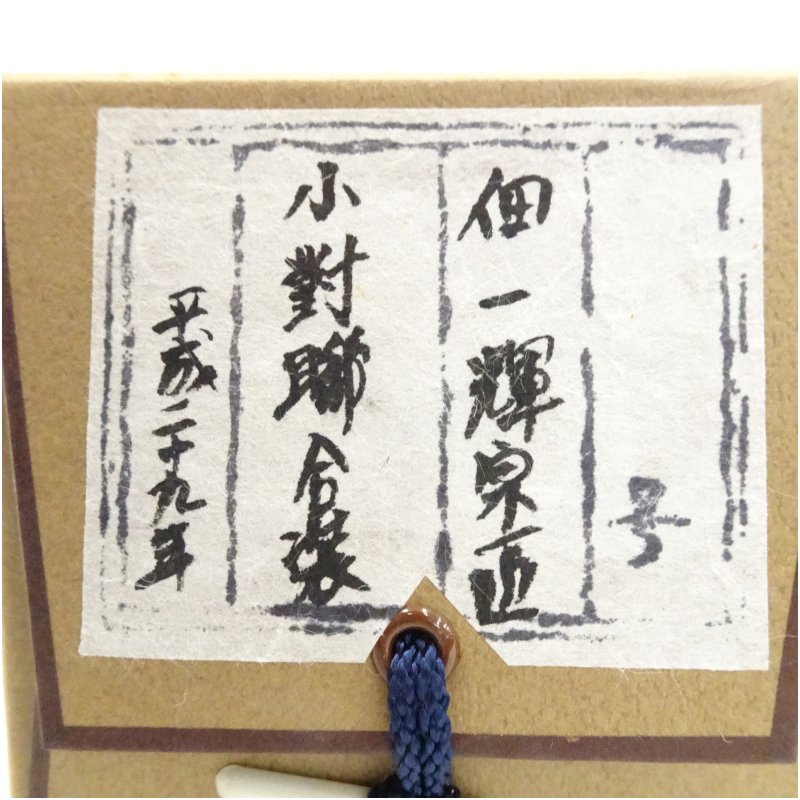 号
佃一輝宗匠
小對聯合装
平成二十九年